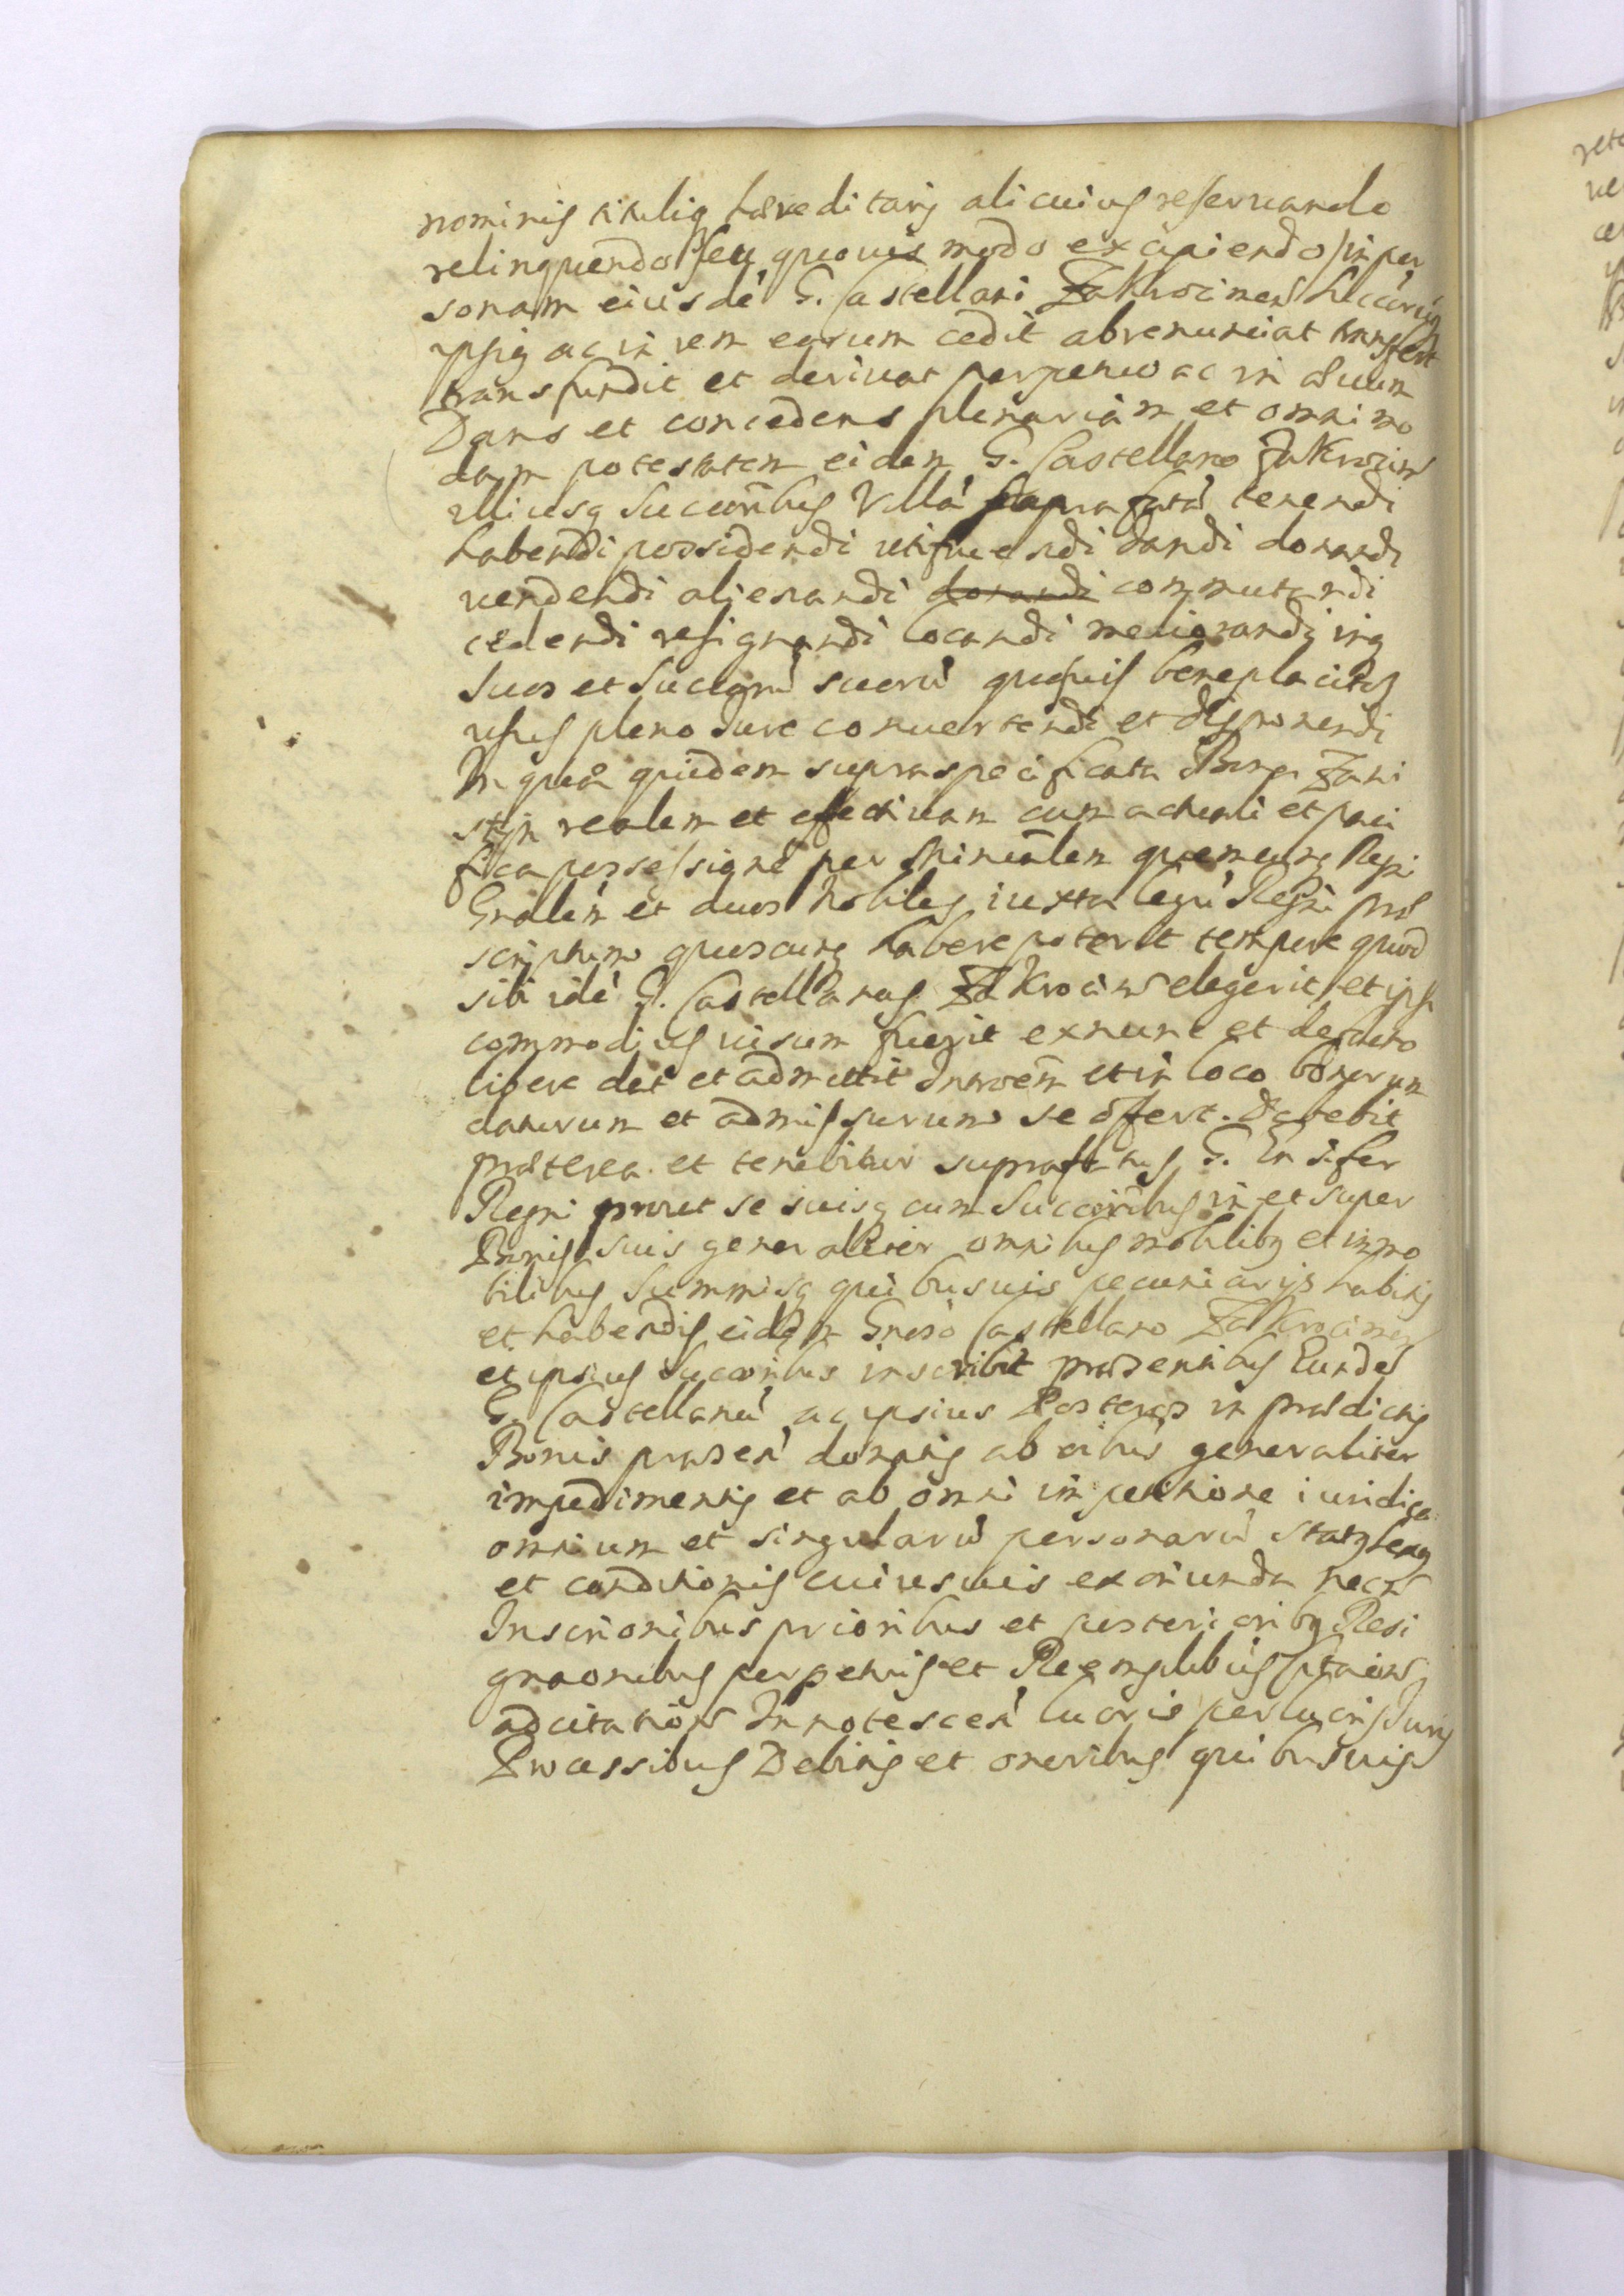 nominis titulisq hæreditarij alicuius reseruando
relinquendo seu quouis modo excipiendo in per
sonam eiusdē G. Castellani Zakrocimeñ Succorūq
ipsiq ac in rem eorum cedit abrenunciat transfert
transfundit et deriuat perpetuo ac in æuum
Dans et concedens plenariam et omnimo
dam potestatem eidem G. Castellano Zakrocimeñ
illiusq Succoribus Villā suprafatā tenendi
habendi possidendi utifruendi dandi donandi
uendendi alienandi donandi commutandi
cædendi resignandi locandi meliorandi inq
suos et Succorū suorū quosuis beneplacitos
usus pleno Iure conuertendi et disponendi
In quā quidem supraspecificata Bona Zani
styn realem et effectiuam cum actuali et paci
fica possessione per Ministrialem quemcunq Regni
Gnalem et duos Nobiles iuxta legū Regni præ
scriptum quoscunq habere poterit tempore quod
sibi idē G. Castellanus Zakrocimeñ elegerit et ipsi
commodius uisum fuerit exnunc et de facto
libere dat et admittit Intromem et in loco bonorum
daturum et admissurum se offert. Debebit
præterea et tenebitur suprafatus G. Ensifer
Regni prout se suisq cum Succoribus in et super
Bonis suis generaliter omnibus mobilibq et immo
bilibus Summisq quibusuis pecuniarijs habitis
et habendis eidem Gnoso Castellano Zakrocimeñ
et ipsius Succoribus inscribit præsentibus Eundē
G. Castellanū ac ipsius Posteros in prædictis
Bonis præsen donatis ab oibus generaliter
impedimentis et ab omni impetitione iuridica
omnium et singularū personarū status sexus
et conditionis cuiusuis exoriunda necñ
Inscrionibus prioribus et posterioribq Resi
gnaonibus perpetuis et Reemptilibus
adcitationē Innotescen lucris perlucris Iuris
Processibus Debitis et oneribus quibusuis